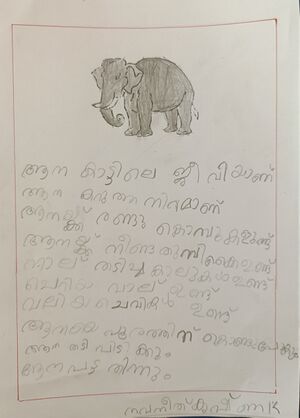 ആന കാട്ടിലെ ജീവിയാണ്
ആന കറുത്ത നിറമാണ്
ആനയ്ക്ക് രണ്ടു കൊമ്പുകളുണ്ട്
ആനയ്ക്ക് നീണ്ട തുമ്പികൈ ഉണ്ട്
നാല് തടിച്ച കാലുകൾ ഉണ്ട്
ചെറിയ വാല് ഉണ്ട്
വലിയ ചെവികൾ ഉണ്ട്
ആനയെ പൂരത്തിന് കൊണ്ടുപോകും
ആന തടി പിടിക്കും.
ആന പട്ട തിന്നും.
നവനീത് കൃഷ്ണ K